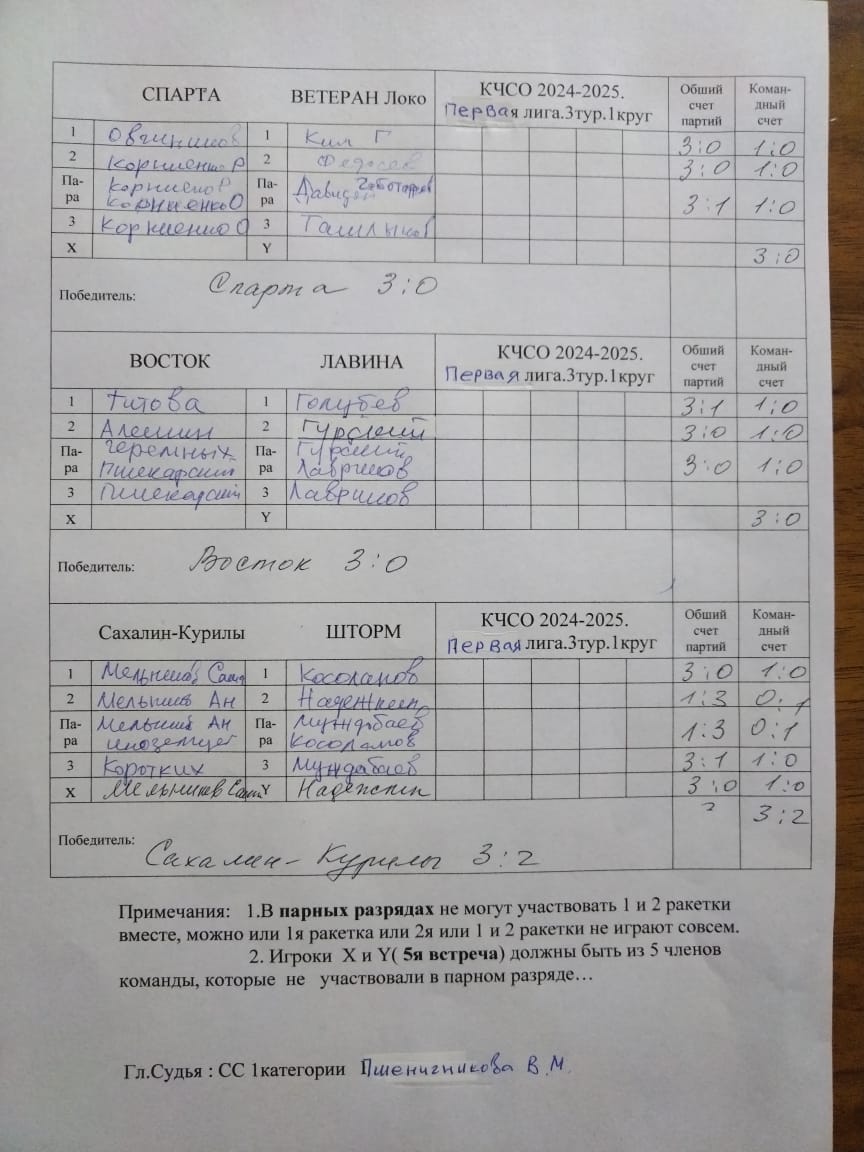 СПАРТА ВЕТЕРАН Локо КЧСО 2024-2025. Первая лига.3тур.1круг Обший счет партий Коман-дный счет
1 Овчинников 1 Ким Г 3:0 1:0
2 Корниенко Р 2 Федосеев 3:0 1:0
Па-ра Корниенко Р Па-ра Давиден
Корниенко О 3:1 1:0
3 Корниенко О 3 Ташлыков
X Y 3:0
Победитель: Спарта 3:0
ВОСТОК ЛАВИНА КЧСО 2024-2025. Первая лига.3тур.1круг Обший счет партий Коман-дный счет
1 Титова 1 Голубев 3:1 1:0
2 Алешин 2 Гурский 3:0 1:0
Па-ра Черемных Па-ра Гурский
Пшекарский Лавриков 3:0 1:0
3 Пшекарский 3 Лавриков
X Y 3:0
Победитель: Восток 3:0
Сахалин-Курилы ШТОРМ КЧСО 2024-2025. Первая лига.3тур.1круг Обший счет партий Коман-дный счет
1 Мельников Саша 1 Косолапов 3:0 1:0
2 Мельников Ан 2 Надежкин 1:3 0:1
Па-ра Мельников Ан Па-ра Муждабаев
Иноземцев Косолапов 1:3 0:1
3 Коротких 3 Муждабаев 3:1 1:0
X Мельников Саша Y Надежкин 3:0 1:0
3:2
Победитель: Сахалин-Курилы 3:2
Примечания: 1.В парных разрядах не могут участвовать 1 и 2 ракетки
вместе, можно или 1я ракетка или 2я или 1 и 2 ракетки не играют совсем.
2. Игроки X и Y( 5я встреча) должны быть из 5 членов
команды, которые не участвовали в парном разряде…
Гл.Судья : СС 1категории Пшеничникова В.М.